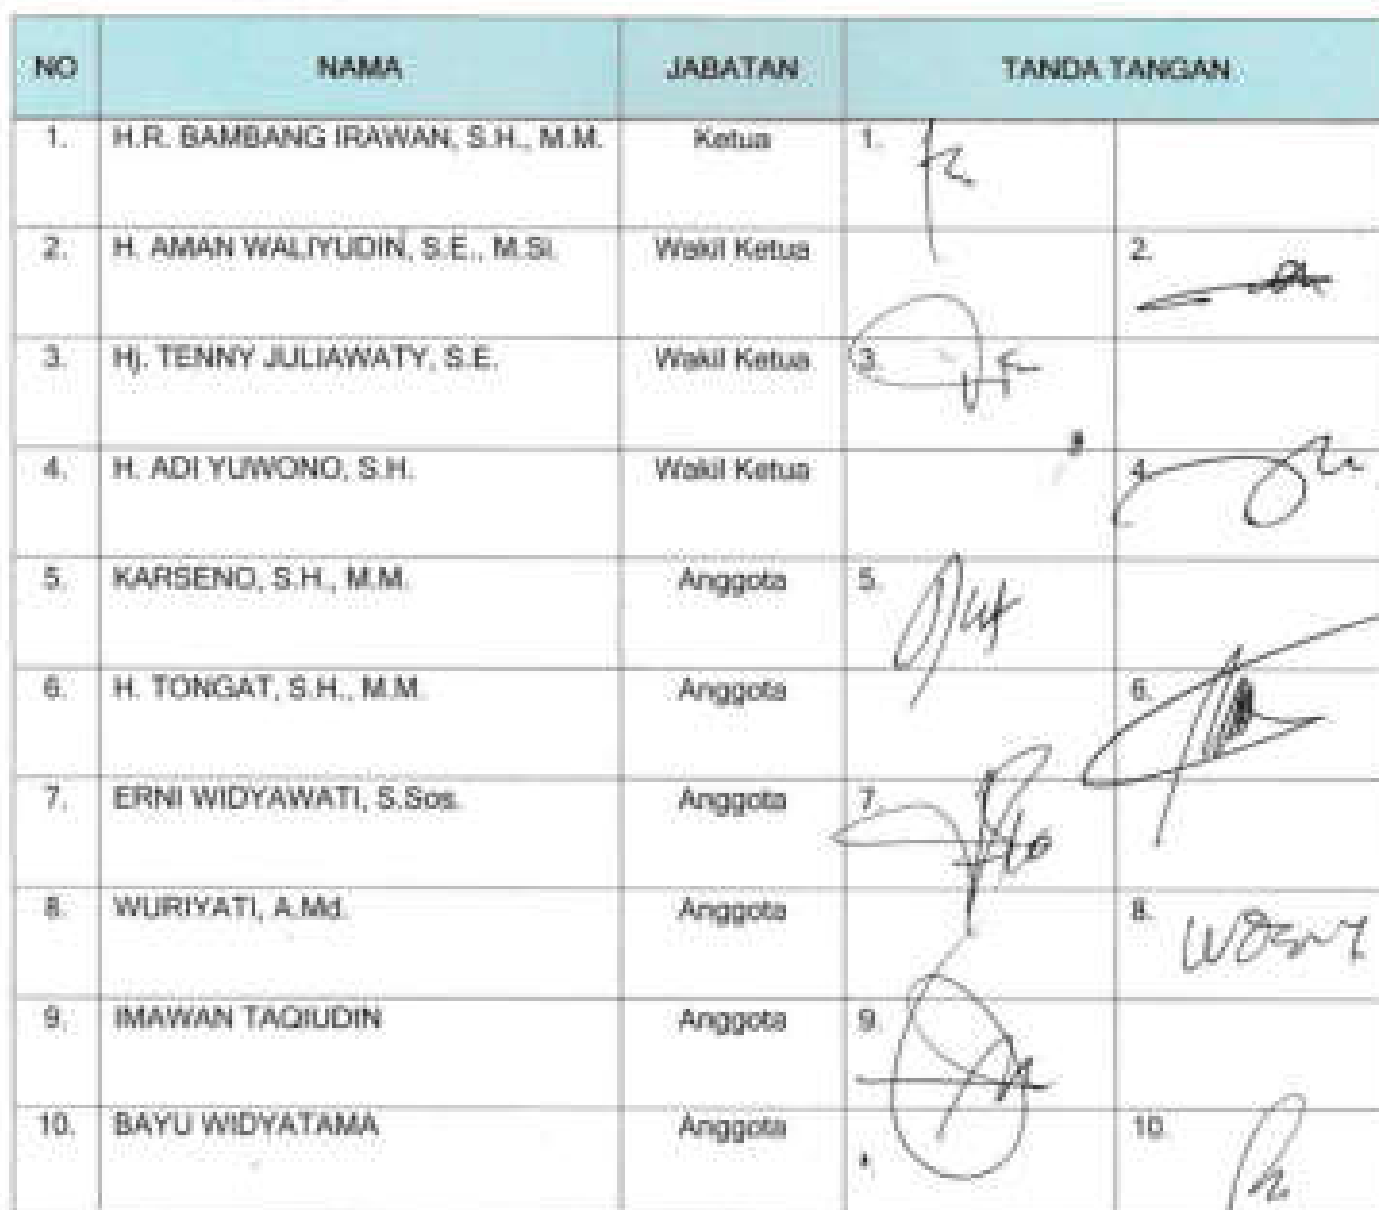 NO NAMA JABATAN TANDA TANGAN
1. H.R. BAMBANG IRAWAN, S.H., M.M. Ketua 1.
2. H. AMAN WALIYUDIN, S.E., M.Si. Wakil Ketua 2.
3. Hj. TENNY JULIAWATY, S.E. Wakil Ketua 3.
4. H. ADI YUWONO, S.H. Wakil Ketua 4.
5. KARSENO, S.H., M.M. Anggota 5.
6. H. TONGAT, S.H., M.M. Anggota 6.
7. ERNI WIDYAWATI, S.Sos. Anggota 7.
8. WURIYATI, A.Md. Anggota 8.
9. IMAWAN TAQIUDIN Anggota 9.
10. BAYU WIDYATAMA Anggota 10.